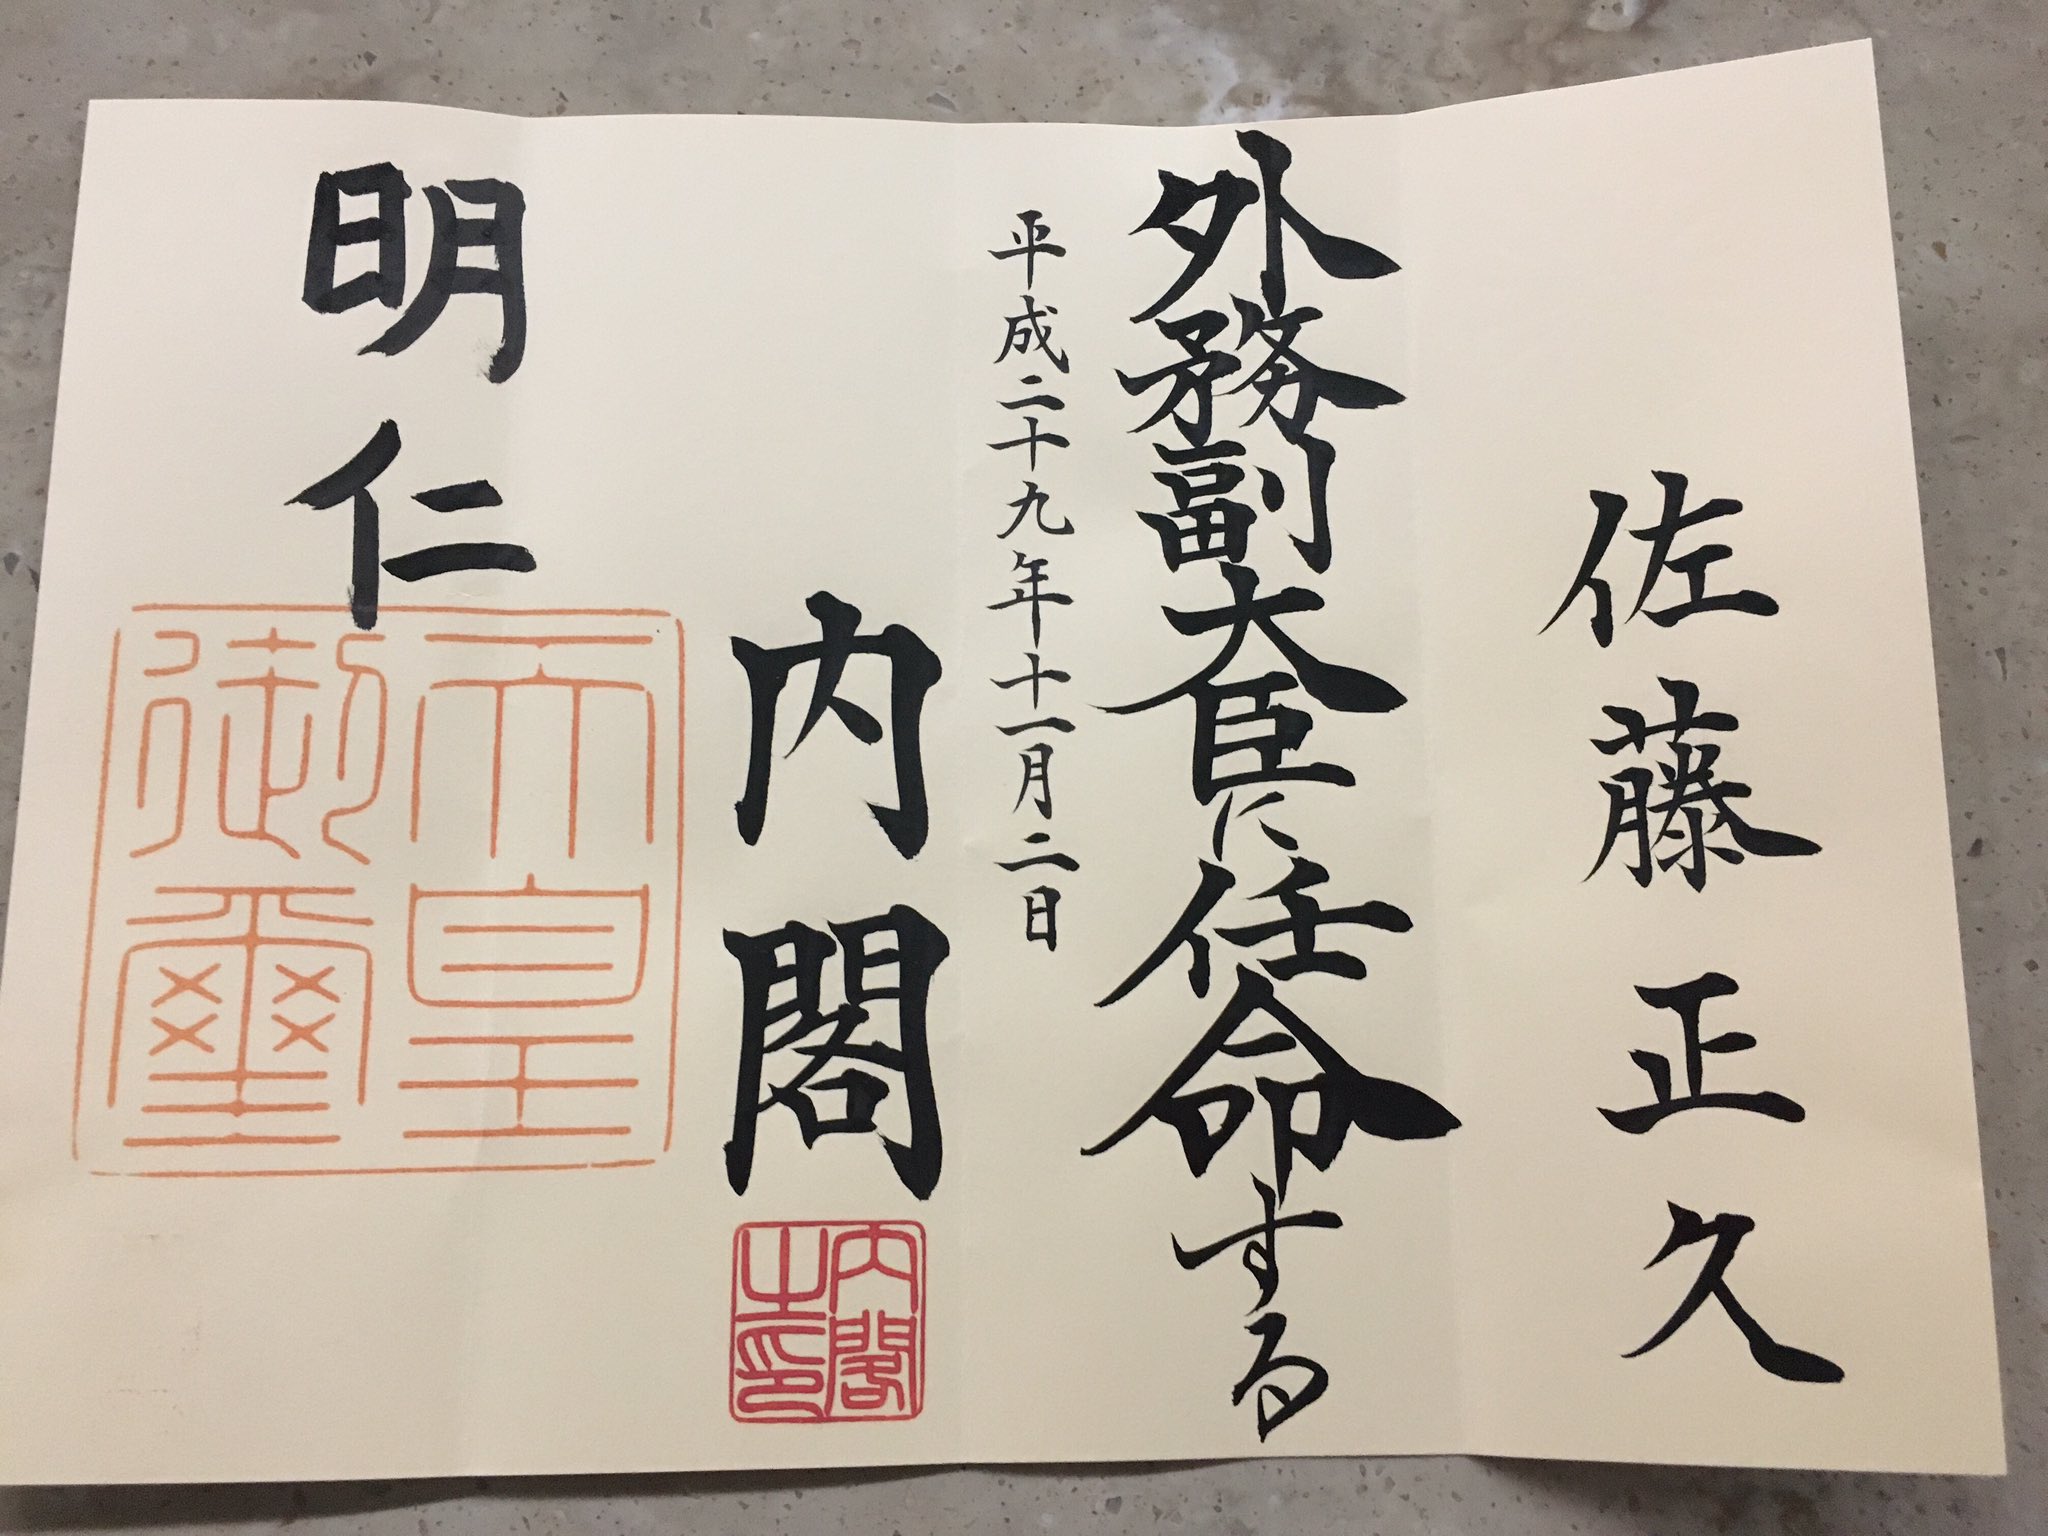 佐藤正久
外務副大臣に任命する
平成二十九年十一月二日
内閣
内閣之印
明仁
天皇御璽